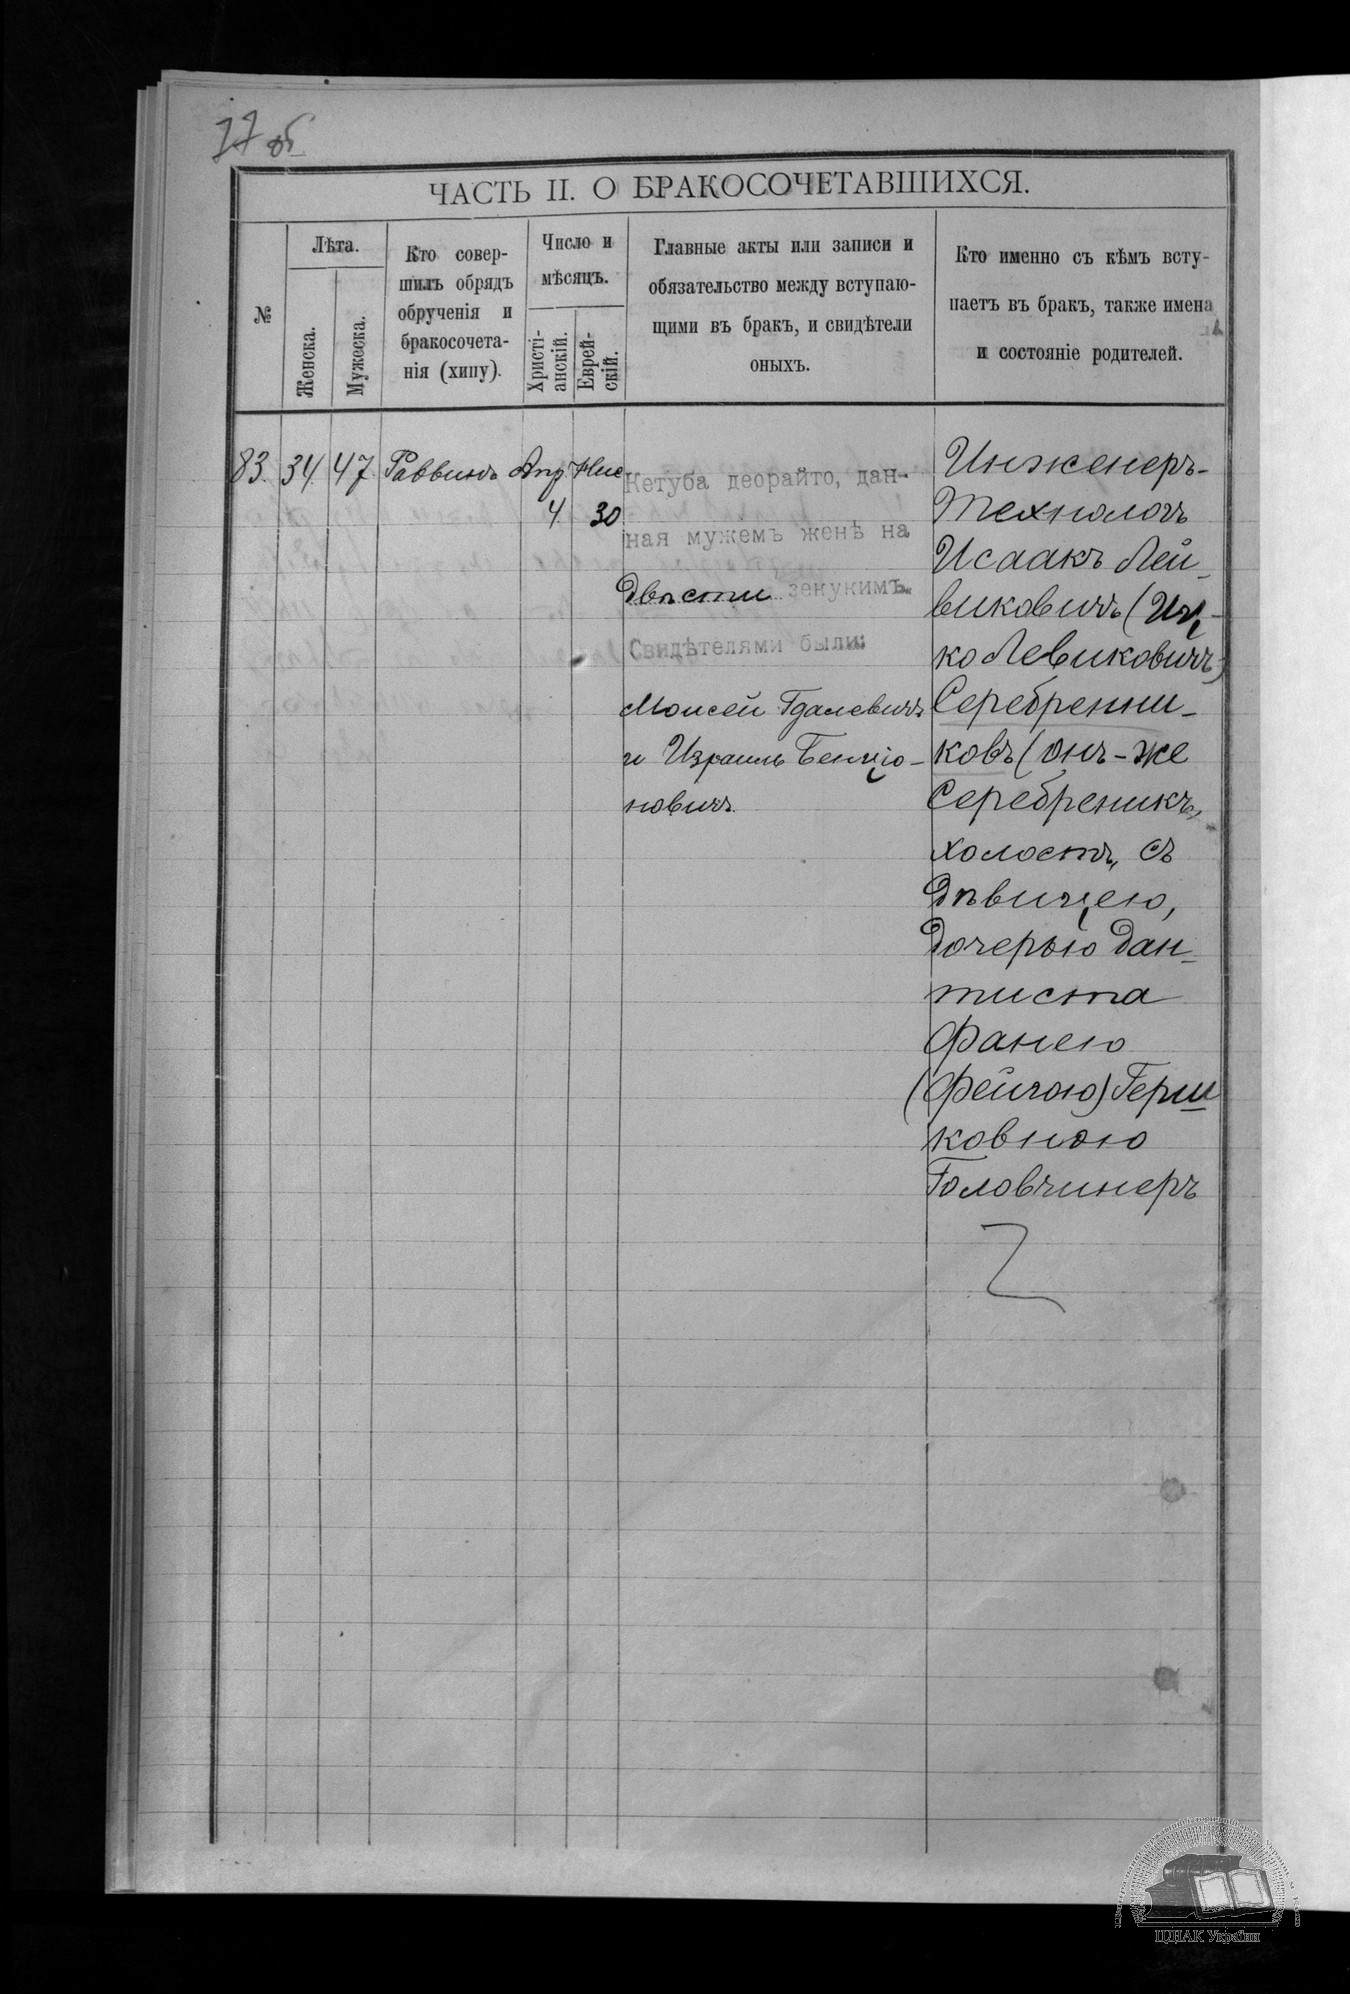 77 об
ЧАСТЬ II. О БРАКОСОЧЕТАВШИХСЯ.
№
Лѣта.
Женска.
Мужеска.
Кто совер-
шилъ обрядъ
обрученія и
бракосочета-
нія (хипу).
Число и
мѣсяцъ.
Христі-
анскій.
Еврей-
скій.
Главные акты или записи и
обязательство между вступаю-
щими въ бракъ, и свидѣтели
оныхъ.
Кто именно съ кѣмъ всту-
паетъ въ бракъ, также имена
и состояніе родителей.
83.
34
47
Раввинъ
Апр
4
Нис
30
Кетуба деорайто, дан-
ная мужемъ женѣ на
двѣсти зекукимъ.
Свидѣтелями были:
Моисей Гдалевичъ
и Израиль Бенціо-
новичъ
Инженеръ-
Технологъ
Исаакъ Лей-
виковичъ (Иц-
ко Левиковичъ)
Серебренни-
ковъ (онъ-же
Серебреникъ,
холостъ, съ
Дѣвицею,
дочерью дан-
тиста
Фанею
(Фейгою) Герш
ковною
Головчинеръ
ЦДІАК України